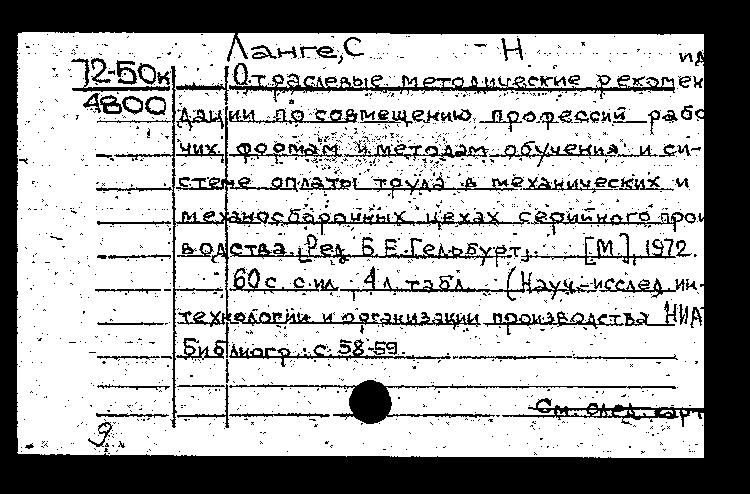 Ланге, С - Н
72-50к Отраслевые методические рекомен
4800 дации по совмещению профессий рабо
чих, формам и методам обучения и си-
стеме оплаты труда в механических и
механосборочных цехах серийного прои
водства. [Ред. Б.Е. Гельбурт]. [М.], 1972.
60 с. с ил., 4 л. табл. (Науч.-исслед. ин-
технологии и организации производства НИА
Библиогр.: с. 58-59.
См. след. карт
9